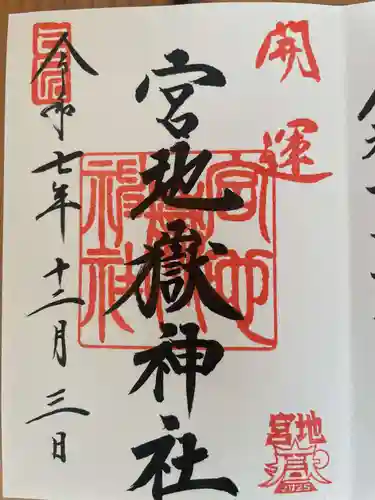 開運
宮地嶽神社
令和七年十二月三日
宮地嶽神社
宮地
2025